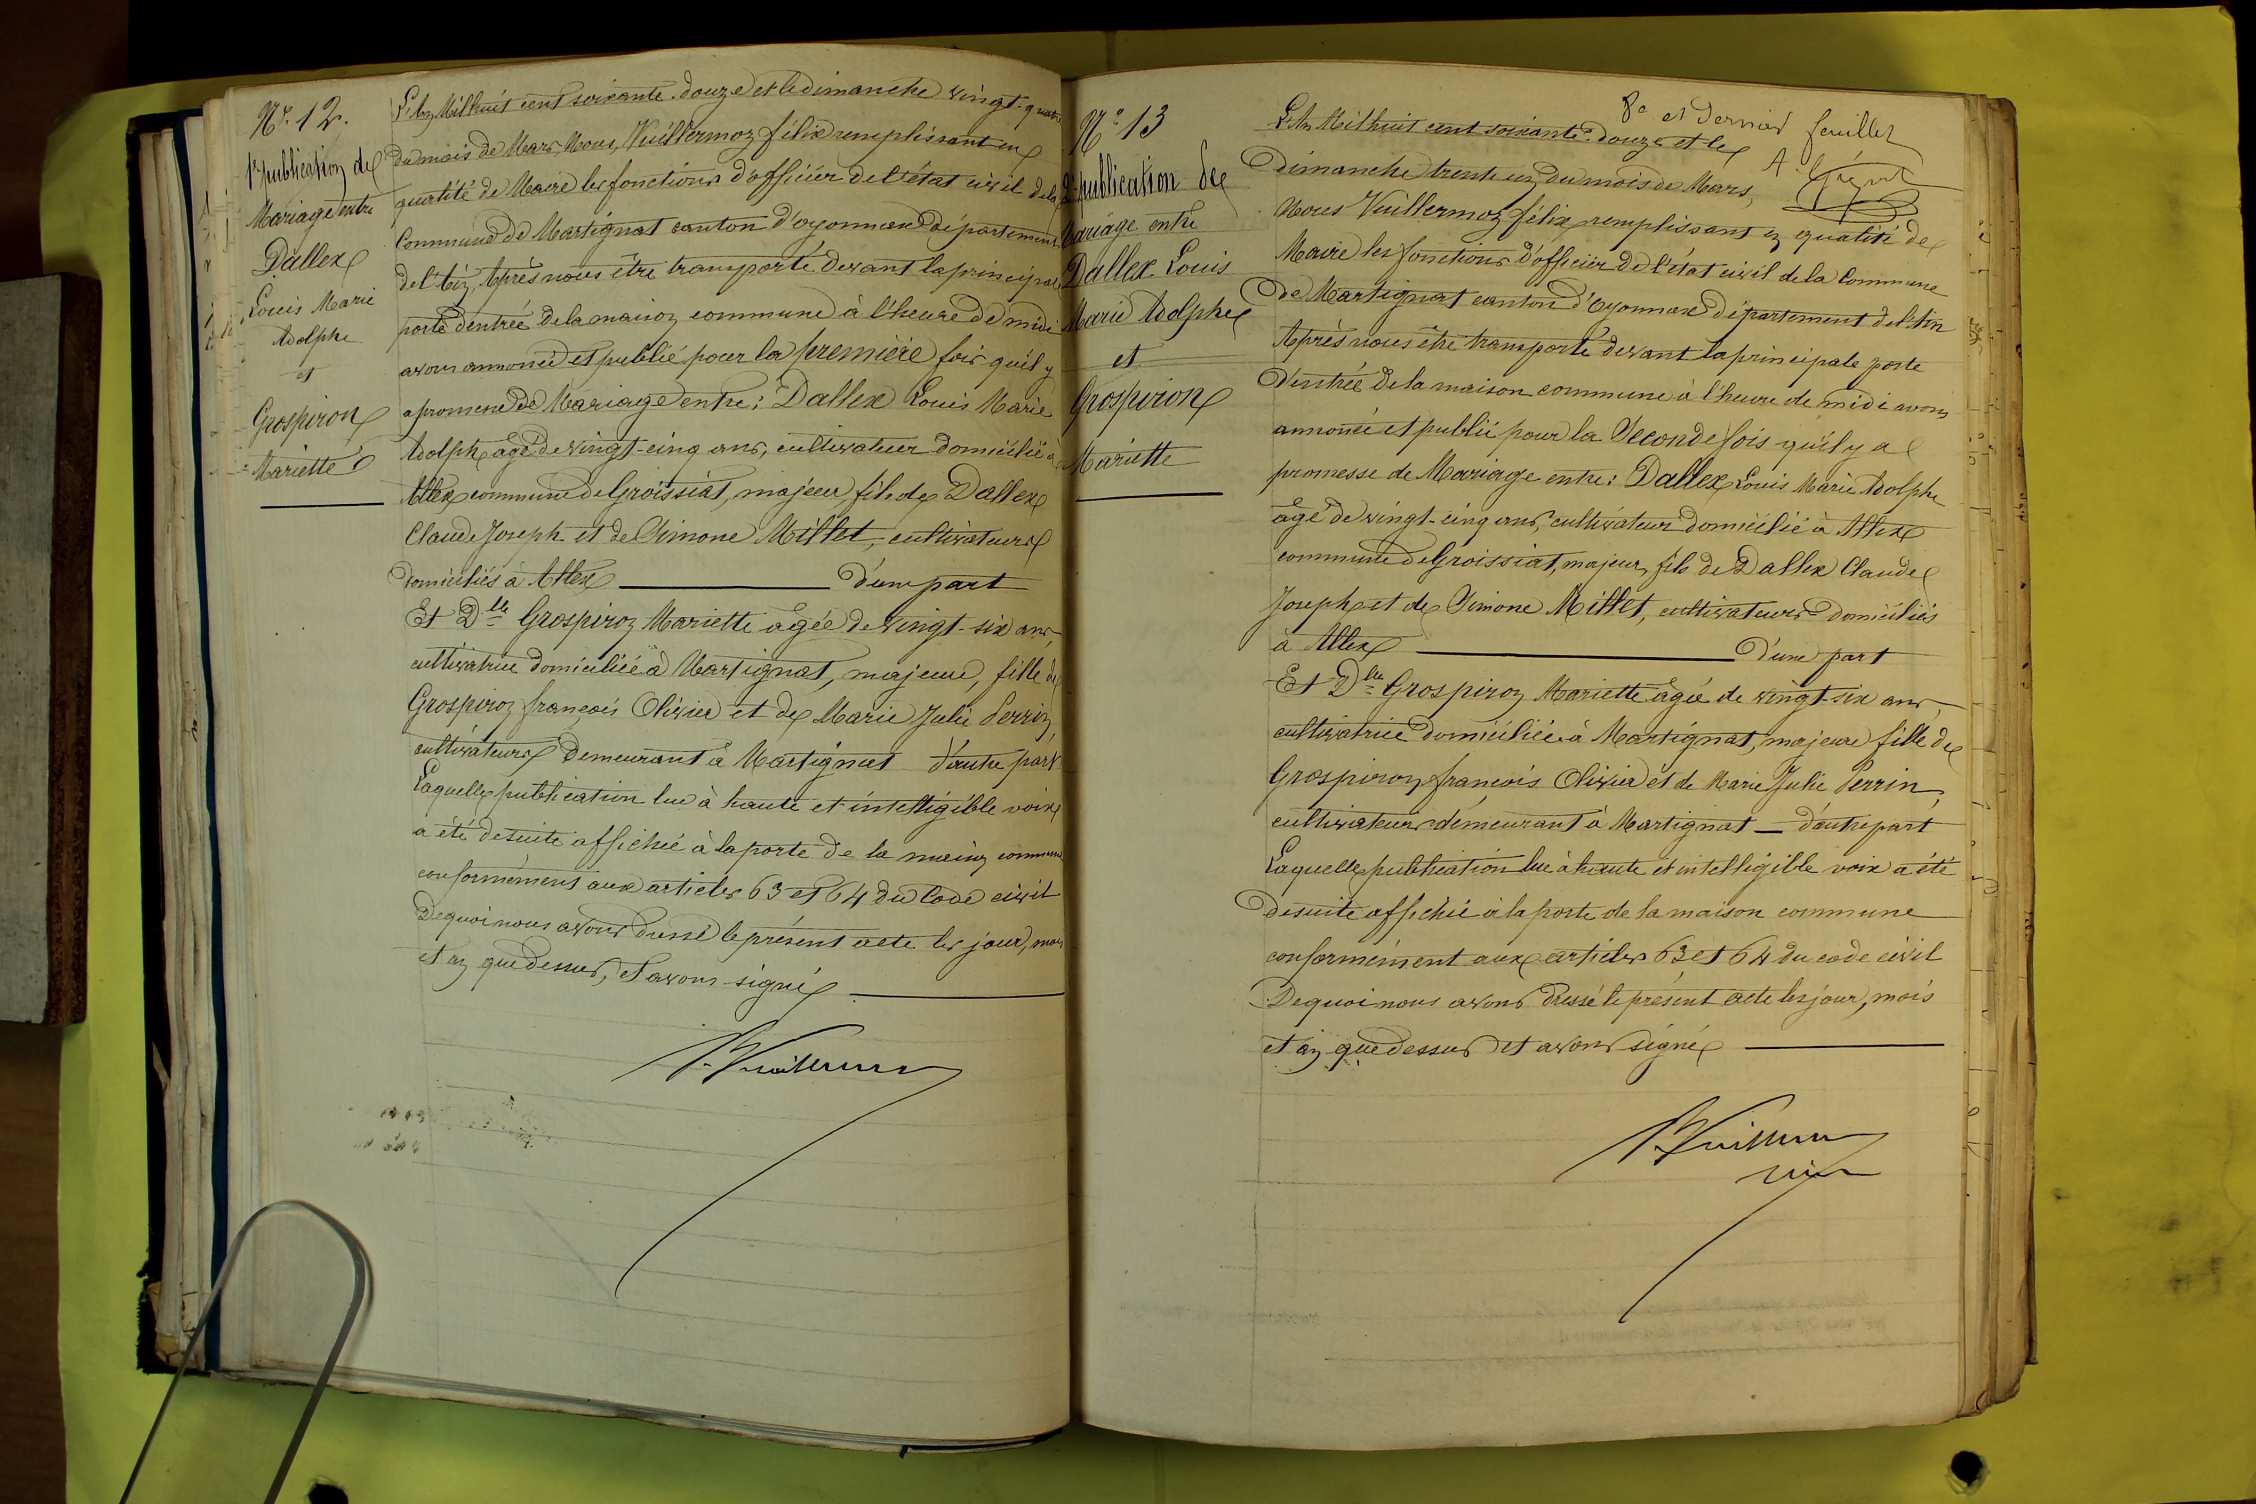 Nº 12.
1re publication de
Mariage entre
Dallex
Louis Marie
Adolphe
et
Grospiron
Mariette
L'An Mil huit cent soixante-douze et le dimanche vingt-quatre
du mois de Mars, Nous, Vuillermoz félix remplissant en
qualité de Maire les fonctions d'officier de l'état civil de la
Commune de Martignat canton d'oyonnax département
de l'Ain, Après nous être transporté devant la principale
porte d'entrée de la maison commune à l'heure de midi
avons annoncé et publié pour la première fois qu'il y
a promesse de Mariage entre: Dallex Louis Marie
Adolphe agé de vingt-cinq ans, cultivateur domicilié à
Allex commune de Groissiat, majeur, fils de Dallex
Claude Joseph et de Simone Millet, cultivateurs
domiciliés à Allex d'une part
Et Dlle Grospiron Mariette agée de vingt-six ans,
cultivatrice domiciliée à Martignat, majeure, fille de
Grospiron françois Olivier et de Marie Julie Perrin,
cultivateurs demeurant à Martignat d'autre part
Laquelle publication lue à haute et intelligible voix
a été de suite affichée à la porte de la maison commune
conformément aux articles 63 et 64 du Code civil
De quoi nous avons dressé le présent acte les jour, mois
et an que dessus, et avons signé
F. Vuillermoz
Nº 13
2e publication de
Mariage entre
Dallex Louis
Marie Adolphe
et
Grospiron
Mariette
8e et dernier feuillet
L'An Mil huit cent soixante-douze et le
dimanche trente un du mois de Mars,
Nous Vuillermoz félix remplissant en qualité de
Maire les fonctions d'officier de l'état civil de la Commune
de Martignat canton d'Oyonnax département de l'Ain
Après nous être transporté devant la principale porte
d'entrée de la maison commune à l'heure de midi avons
annoncé et publié pour la Seconde fois qu'il y a
promesse de Mariage entre: Dallex Louis Marie Adolphe
agé de vingt-cinq ans, cultivateur domicilié à Allex
commune de Groissiat, majeur, fils de Dallex Claude
Joseph et de Simone Millet, cultivateurs domiciliés
à Allex d'une part
Et Dlle Grospiron Mariette agée de vingt-six ans,
cultivatrice domiciliée à Martignat, majeure fille de
Grospiron francois Olivier et de Marie Julie Perrin,
cultivateurs demeurant à Martignat d'autre part
Laquelle publication lue à haute et intelligible voix a été
de suite affichée à la porte de la maison commune
conformément aux articles 63 et 64 du code civil
De quoi nous avons dressé le présent acte les jour, mois
et an que dessus et avons signé
F. Vuillermoz